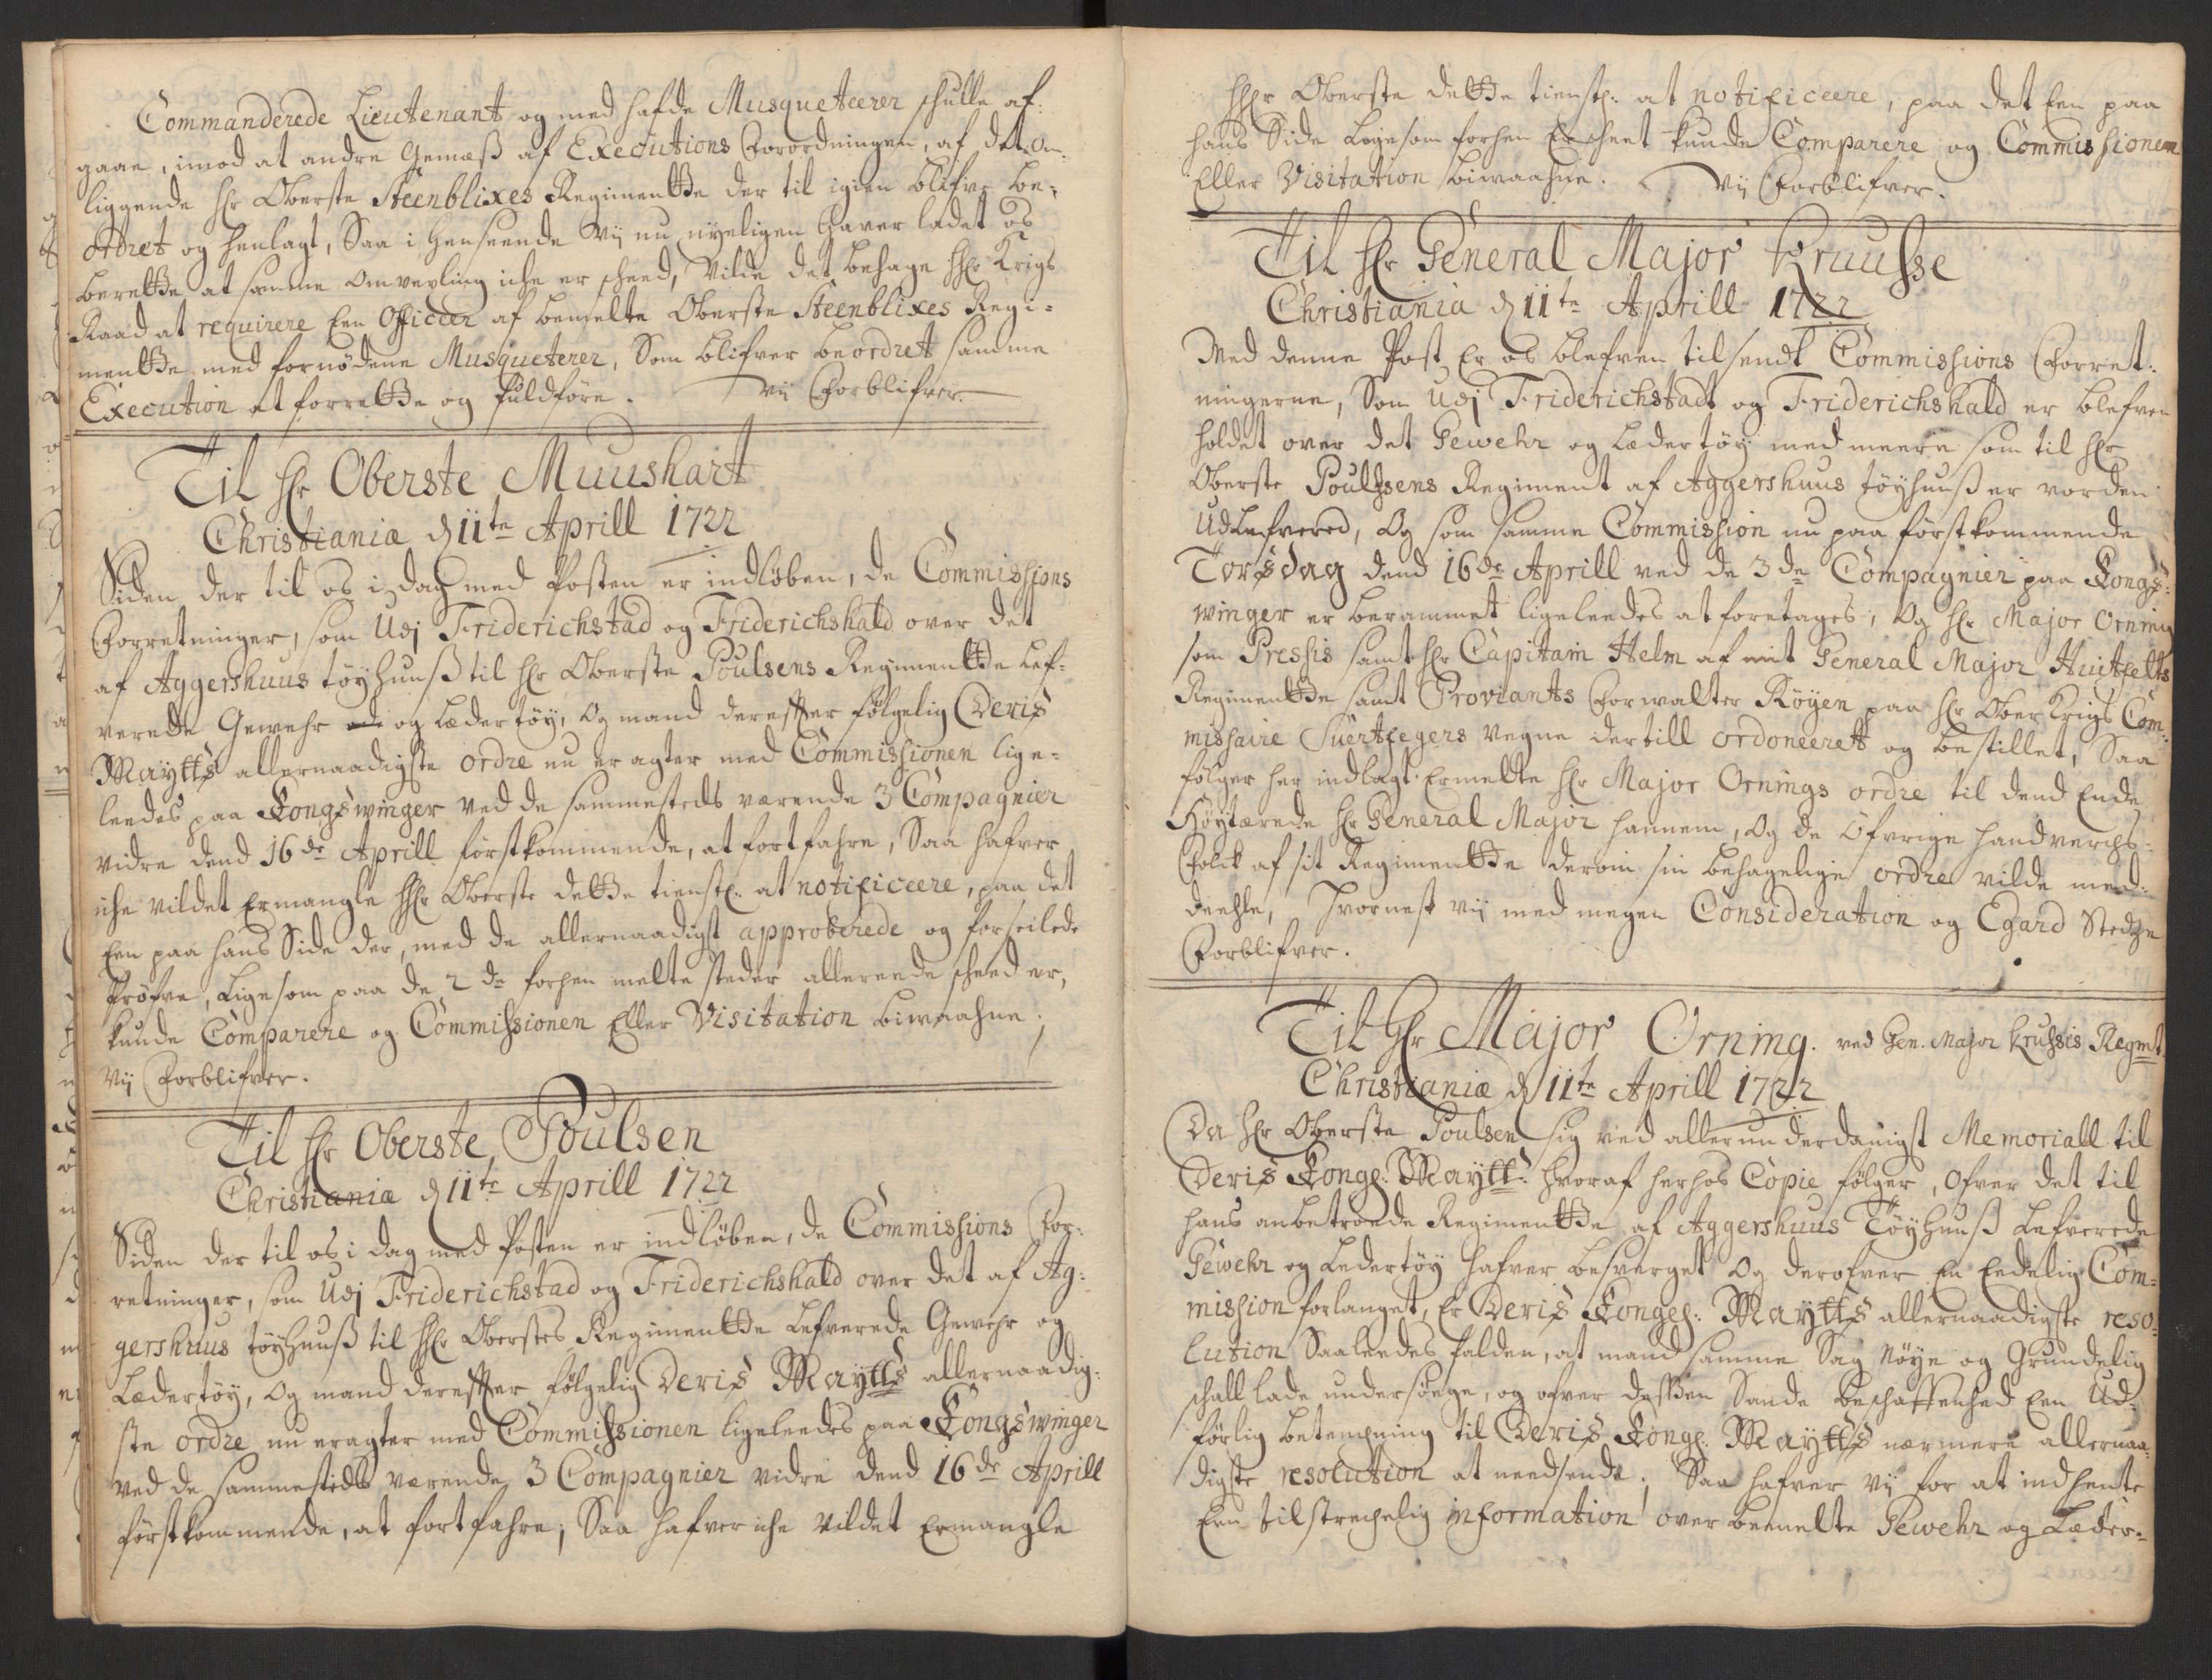 Commanderede Lieutenant og med hafde Musqueteerer schulle af-
gaae, imod at andre Gemæß af Executions Forordningen, af det an-
liggende Hr Oberste Steenblixes Regimentte der til igien blifve be-
ordret og henlagt, Saa i henseende Vij nu nyeligen haver ladet os
berette at samme omvexling iche er scheed, Vilde det behage Hr Krigs
Raad at requirere Een Officeer af bemelte Oberste Steenblixes Regi-
mentte med fornødene Musqueterer, Som blifver beordret samme
Execution at forrette og fuldføre. Vij Forblifver
Til Hr Oberste Muushart
Christiania d 11te Aprill 1722
Siden der til os i dag med Posten er indløben, de Commissions
Forretninger, som Udj Friderichstad og Friderichshald over det
af Aggershuus tøyhuuß til Hr Oberste Poulsens Regimentte lef-
verede Gewehr og Lædertøy, Og mand derefter følgelig Deris
Maytts allernaadigste ordre nu er agter med Commissionen lige-
leedes paa Kongswinger ved de sammesteds værende 3 Compagnier
vidre dend 16de Aprill førstkommende, at fortfahre, Saa hafver
iche vildet Ermangle Hr Oberste dette tienstl. at notificeere, paa det
Een paa hans Side der, med de allernaadigst approberede og forseilede
Prøfve, Ligesom paa de 2de forhen melte steder allereede scheed er,
kunde Comparere og Commissionen Eller Visitation biwaahne.
Vij Forblifver.
Til Hr Oberste Poulsen
Christiania d 11te Aprill 1722
Siden der til os i dag med Posten er indløben, de Commissions For-
retninger, som Udj Friderichstad og Friderichshald over det af Ag-
gershuus tøyhuuß til Hr Oberstes Regimentte Lefverede Gewehr og
Lædertøy, Og mand derefter følgelig Deris Maytts allernaadig-
ste ordre nu eragter med Commissionen ligeleedes paa Kongswinger
ved de sammesteds værende 3 Compagnier vidre dend 16de Aprill
førstkommende, at fortfahre; Saa hafver iche vildet Ermangle
Hr Oberste dette tienstl. at notificeere, paa det Een paa
hans Side Ligesom forhen Er scheet kunde Comparere og Commissionen
Eller Visitation biwaahne. Vij Forblifver.
Til Hr General Major Kruusse
Christiania d 11te Aprill 1722
Med denne Post Er os blefven tilsendt Commissions Forret-
ningerne, Som Udj Friderichstadt og Friderichshald er blefven
holdet over det Gewehr og Lædertøy med meere som til Hr
Oberste Poulssens Regiment af Aggershuus tøyhuuß er vorden
Udlefvered, Og som samme Commission nu paa førstkommende
Torsdag dend 16de Aprill ved de 3de Compagnier paa Kongs-
winger er berammet ligeleedes at foretages, Og Hr Major Orning
som Pressis samt Hr Capitain Helm af General Major Huitfelts
Regimentte samt Proviants Forwalter Röyen paa Hr Ober Krigs Com-
missaire Suertfegers vegne dertill ordoneeret og bestillet, Saa
følger her indlagt Ermelte Hr Major Ornings ordre til dend Ende
Höytærede Hr General Major hannem, Og de Öfvrige handverchs-
Folck af sit Regimentte derom sin behagelige ordre vilde med-
deehle, Hvornest vij med megen Consideration og Egard Stedze
Forblifver.
Til Hr Major Orning. ved Gen. Major Krussis Regmt
Christiania d 11te Aprill 1722
Da Hr Oberste Poulsen sig ved allerunderdanigst Memoriall til
Deris Kongl: Maytt: hvoraf herhos Copie følger, Ofver det til
hans anbetroede Regimentte af Aggershuus Töyhuuß Lefverede
Gewehr og Ledertøy hafver besverget Og derofver En Eedelig Com-
mission forlanget, Er Deris Kongel: Maytts allernaadigste reso-
lution Saaleedes falden, at mand samme Sag nøye og Grundelig
schall lade undersøege, og ofver dessen Sande beschaffenhed Een Ud-
førlig betenchning til Deris Kongl. Maytts nærmere allernaa-
digste resolution at needsende. Saa hafver vij for at indhente
Een tilstrechelig information over bemelte Gewehr og Læder-